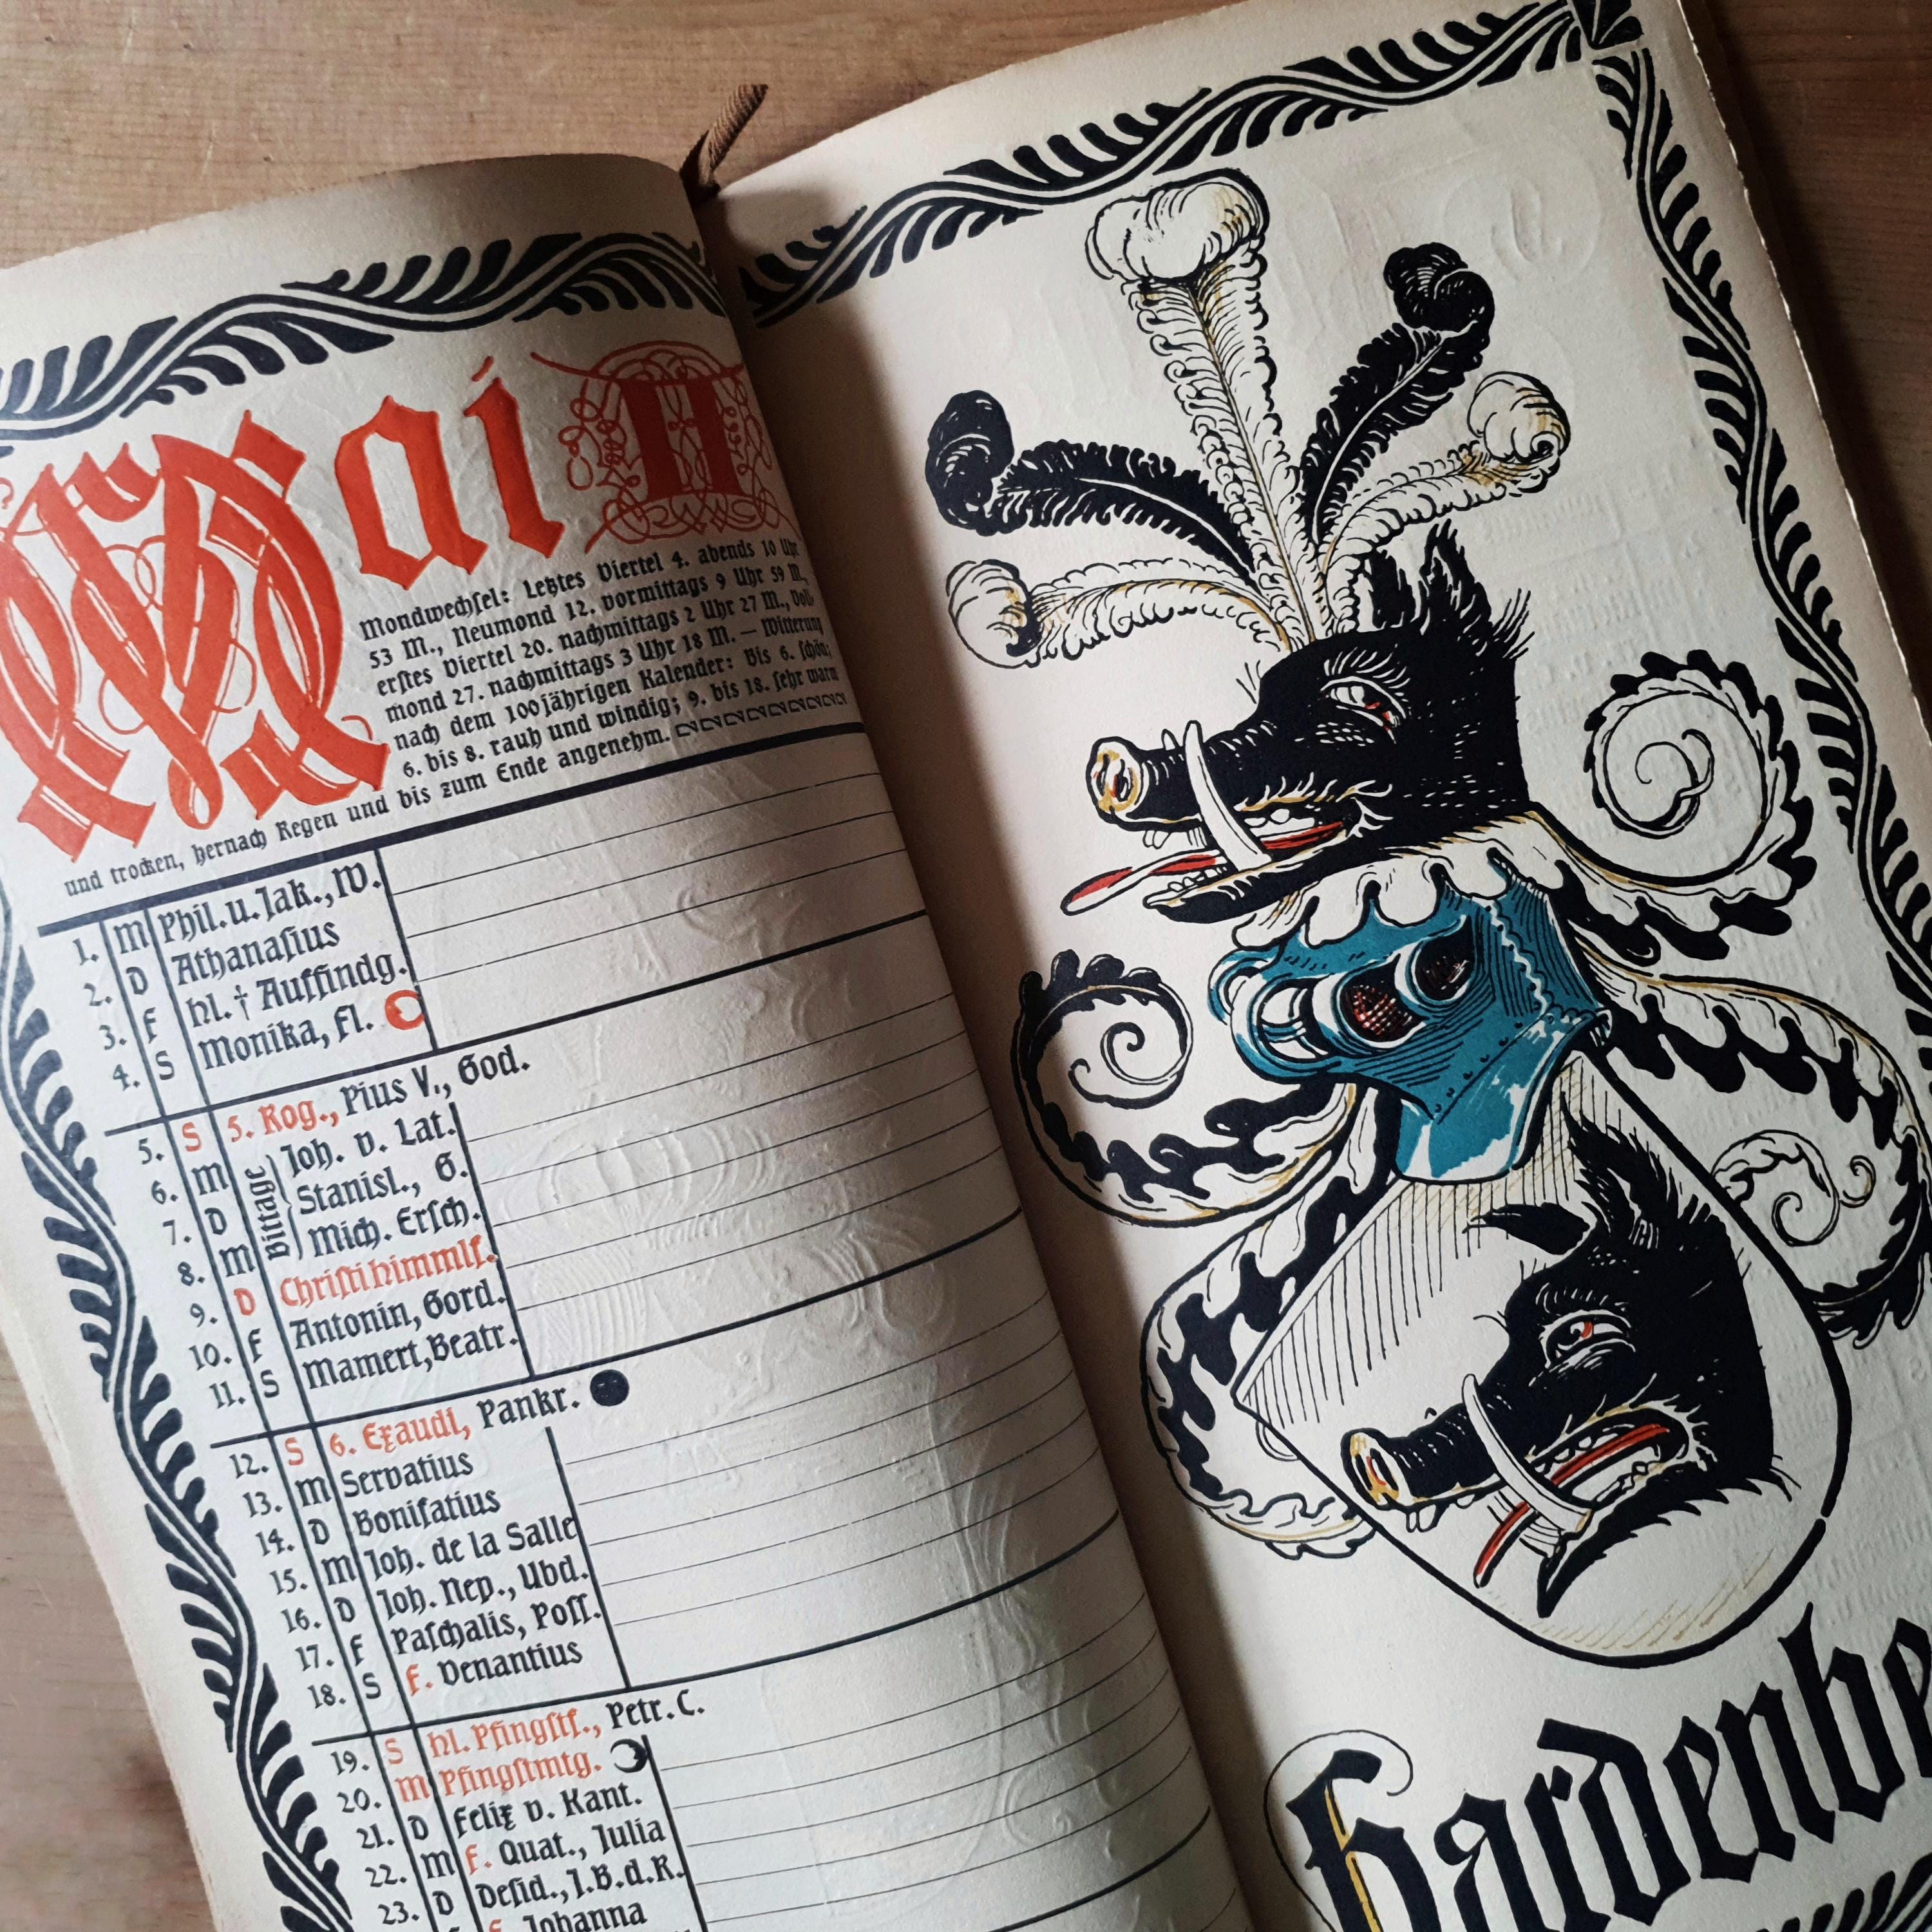 Mai
Mondwechsel: Letztes Viertel 4. abends 10 Uhr
53 M., Neumond 12. vormittags 9 Uhr 59 M.,
erstes Viertel 20. nachmittags 2 Uhr 27 M., Voll-
mond 27. nachmittags 3 Uhr 18 M. — Witterung
nach dem 100jährigen Kalender: Bis 6. schön;
6. bis 8. rauh und windig; 9. bis 18. sehr warm
und trocken, hernach Regen und bis zum Ende angenehm.
1. M Phil. u. Jak., W.
2. D Athanasius
3. F hl. † Auffindg.
4. S Monika, Fl.
5. S 5. Rog., Pius V., God.
Bittage
6. M Joh. v. Lat.
7. D Stanisl., G.
8. M Mich. Ersch.
9. D Christi Himmlf.
10. F Antonin, Gord.
11. S Mamert, Beatr.
12. S 6. Exaudi, Pankr.
13. M Servatius
14. D Bonifatius
15. M Joh. de la Salle
16. D Joh. Nep., Ubd.
17. F Paschalis, Poss.
18. S F. Venantius
19. S hl. Pfingstf., Petr. C.
20. M Pfingstmtg.
21. D Felix v. Kant.
22. M F. Quat., Julia
23. D Desid., J.B.d.R.
F. Johanna
Hardenbe